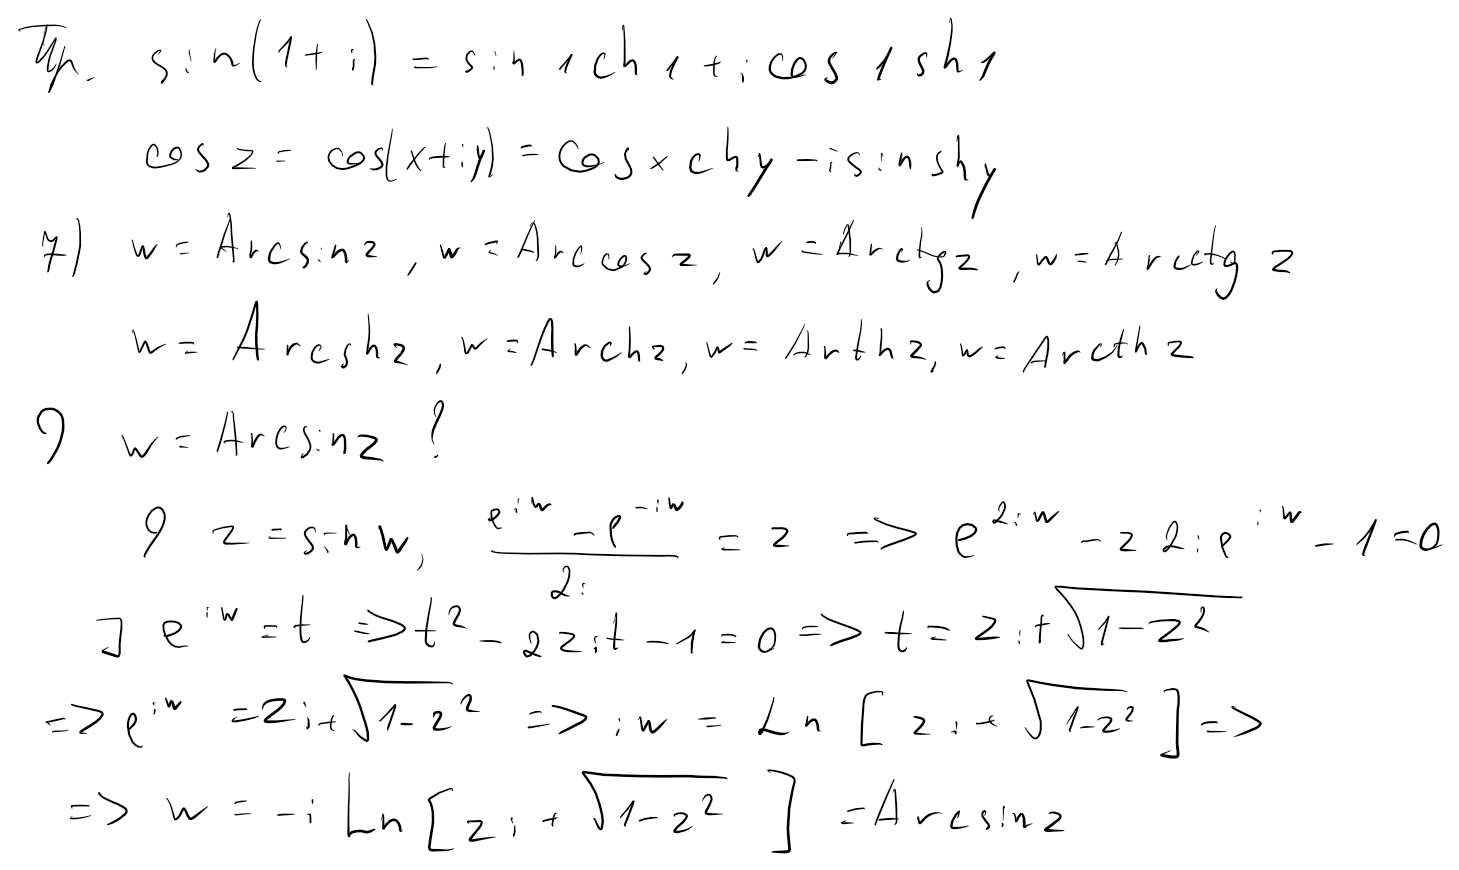 Пр. sin(1+i) = sin 1 ch 1 + i cos 1 sh 1
cos z = cos(x+iy) = cos x ch y − i sin sh y
7) w = Arcsin z, w = Arccos z, w = Arctg z, w = Arcctg z
w = Arcsh z, w = Arch z, w = Arth z, w = Arcth z
w = Arcsin z ?
z = sin w, (e^{iw} − e^{−iw})/2i = z => e^{2iw} − z 2i e^{iw} − 1 = 0
] e^{iw} = t => t² − 2zit − 1 = 0 => t = zi + √(1−z²)
=> e^{iw} = zi + √(1−z²) => iw = Ln [zi + √(1−z²)] =>
=> w = −i Ln [zi + √(1−z²)] = Arcsin z